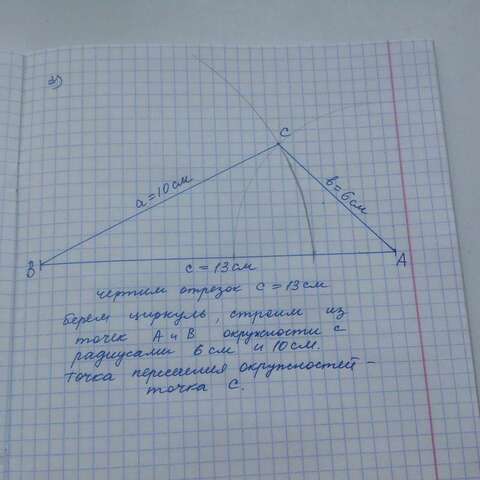 а)
C
a = 10 см
в = 6 см
B
A
c = 13 см
чертим отрезок c = 13 см
берём циркуль, строим из
точек A и B окружности с
радиусами 6 см и 10 см.
Точка пересечения окружностей –
точка C.